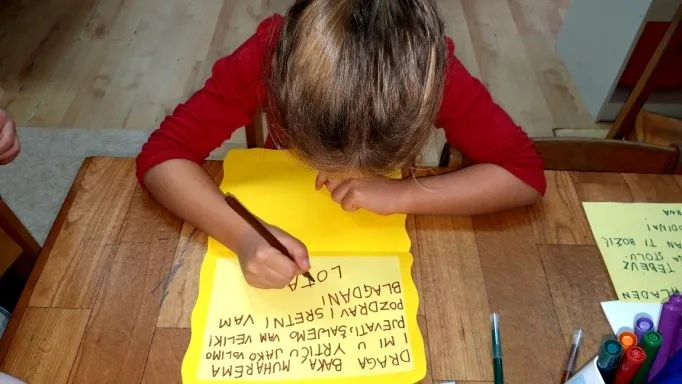 DRAGA BAKA, MUHAREMA
I MI U VRTIĆU JAKO VOLIMO
PJEVATI, ŠALJEMO VAM VELIKI
POZDRAV I SRETNI VAM
BLAGDANI!
LOTA
MLADEN
TEBE UZ
STOLU.
TI BOŽIĆ